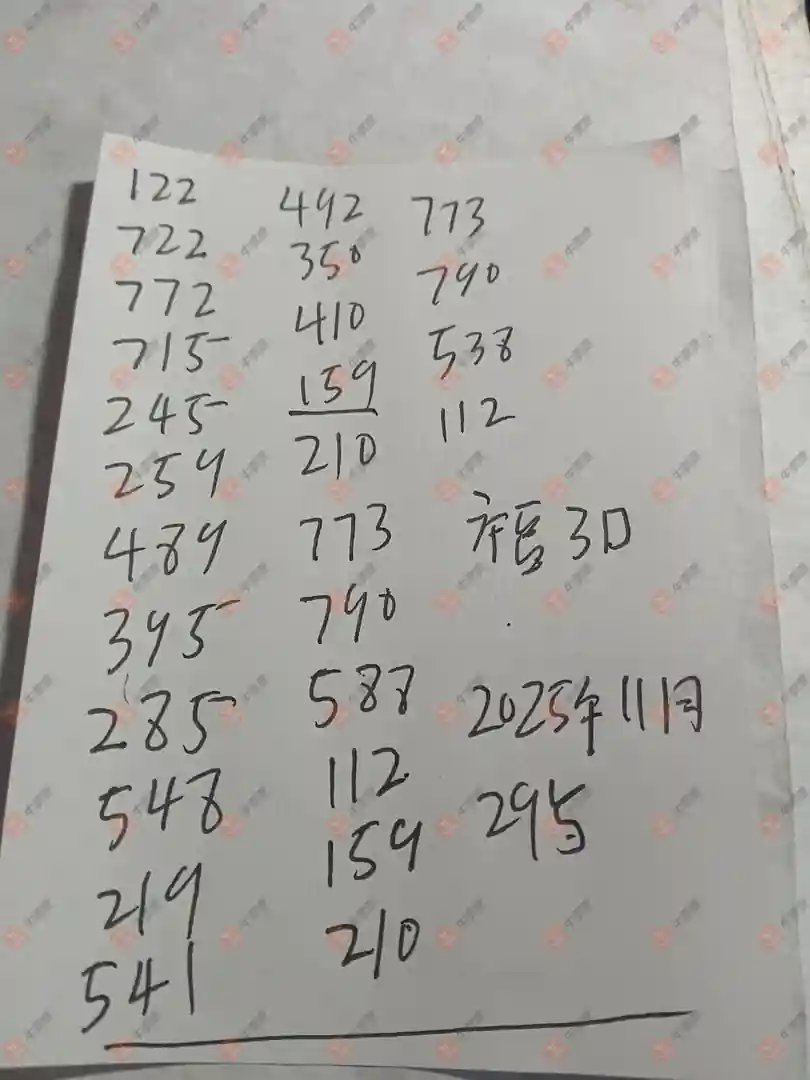 122
722
772
715
245
259
489
395
285
548
219
541
492
350
410
159
210
773
790
588
112
159
210
773
790
538
112
3D
2025年11月
29号